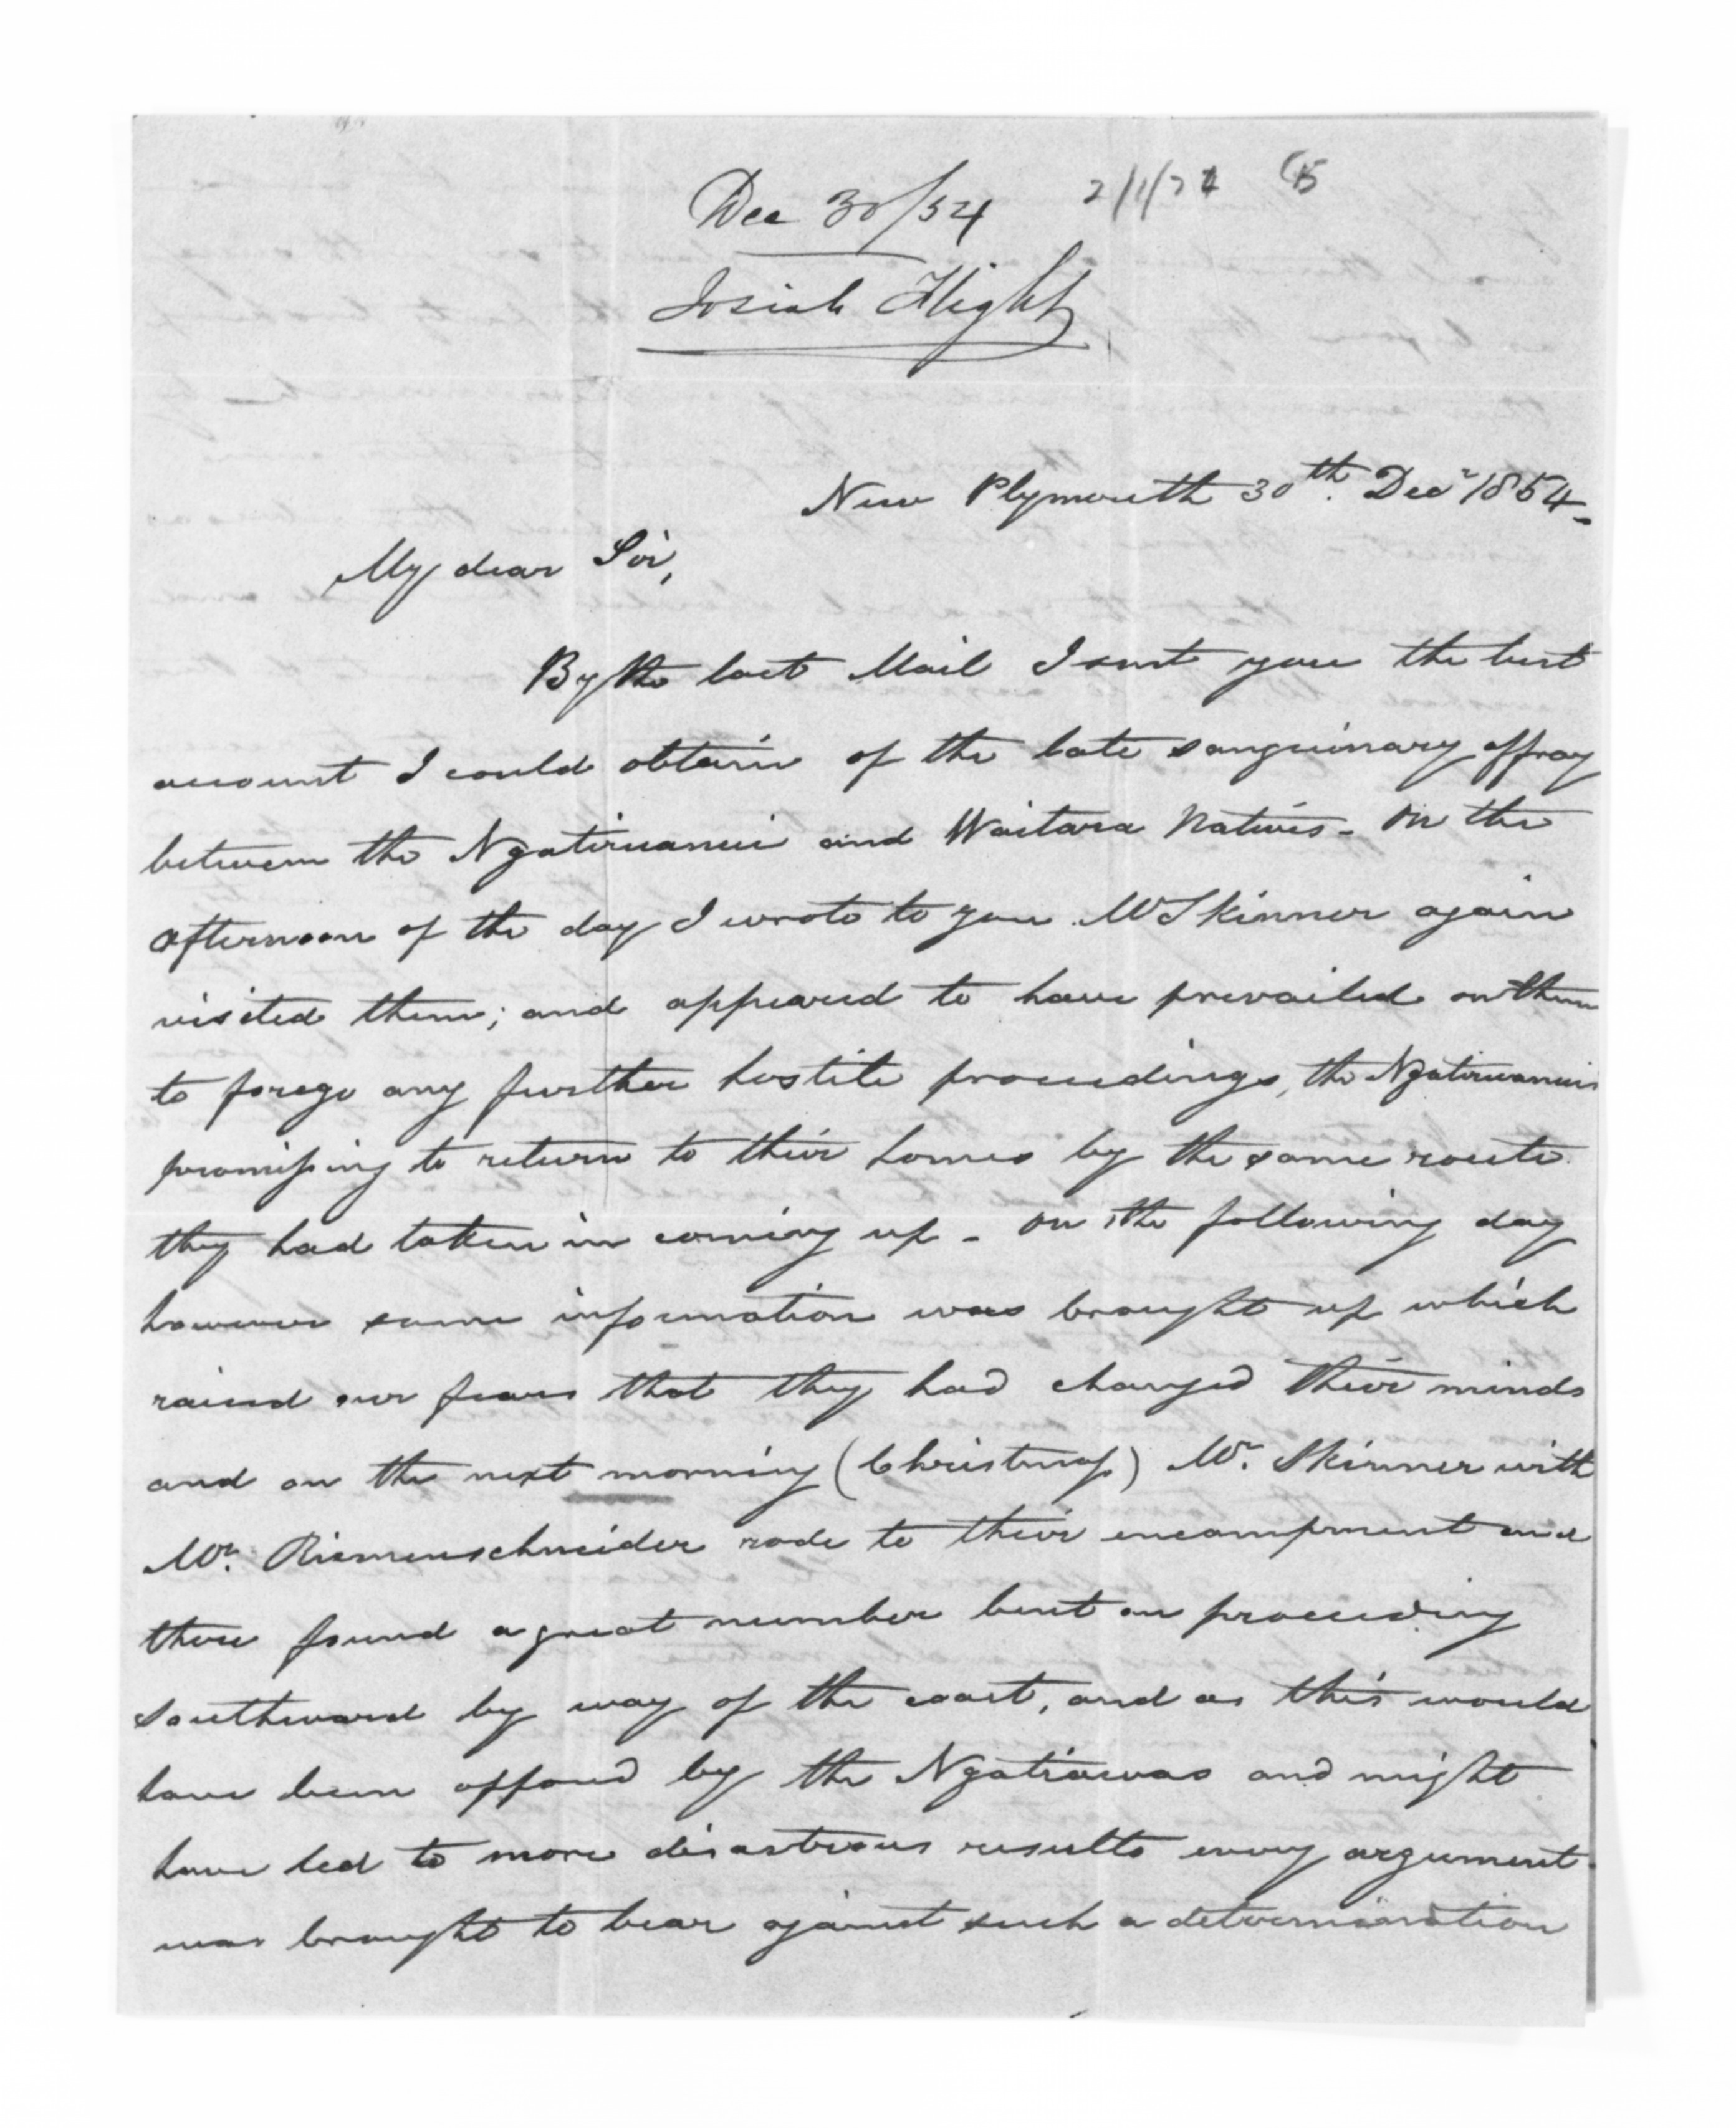 Dec 30/54
Josiah Flight
New Plymouth 30th. Decr 1854 -
My dear Sir,
By the last Mail I sent you the best
account I could obtain of the late sanguinary affray
between the Ngatiruanui and Waitara Natives - On the
afternoon of the day I wrote to you Mr Skinner again
visited them; and appeared to have prevailed on them
to forego any further hostile proceedings, the Ngatiruanuis
promissing to return to their homes by the same route
they had taken in coming up - On the following day
however some information was brought up which
raised our fears that they had changed their minds
and on the next morning (Christmass) Mr. Skinner with
Mr. Riemenschneider rode to their encampment and
there found a great number bent on proceeding
southward by way of the coast, and as this would
have been opposed by the Ngatiawas and might
have led to more disastrous results every argument
was brought to bear against such a determination